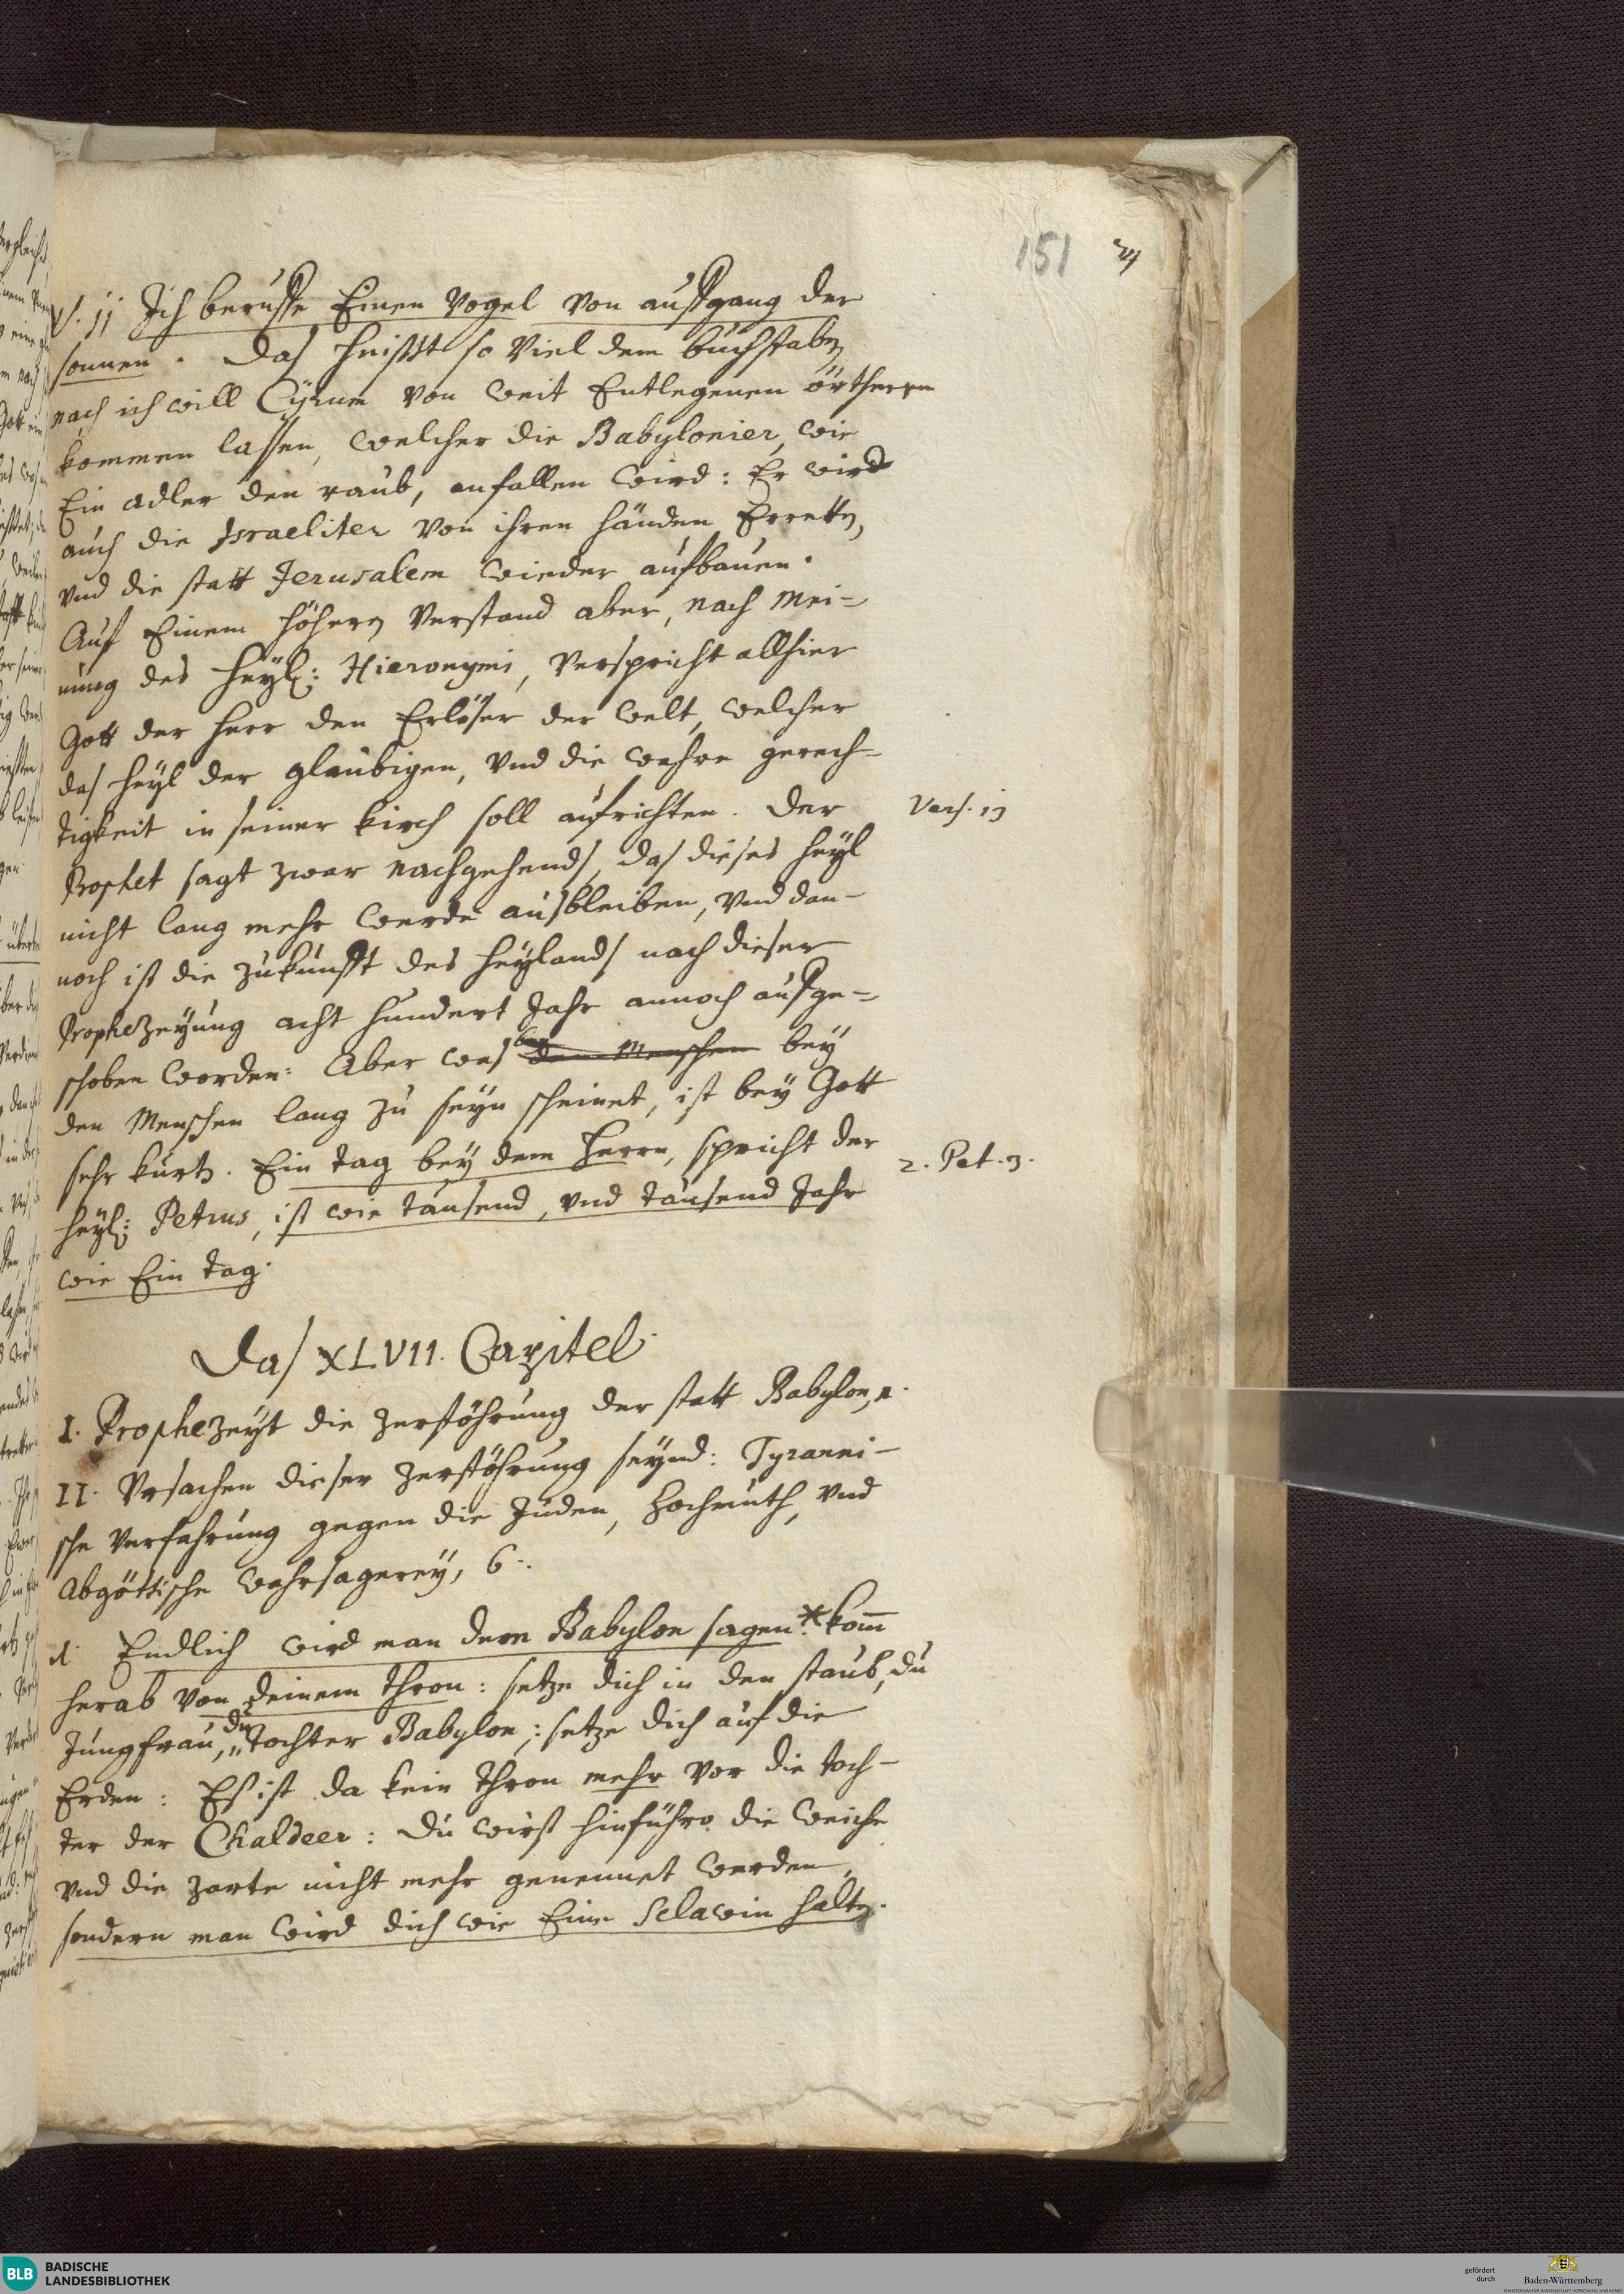 151
V. 11 Ich beruffe Einen Vogel von auffgang der
sonnen. Das heisst so Viel dem buchstaben
nach ich will Cyrum von weit Entlegenen örtheren
kommen lassen, welcher die Babylonier, wie
Ein adler den raub, anfallen wird: Er wird
auch die Israeliter von ihren händen Erretten,
Vnd die statt Jerusalem wieder aufbauen.
Auf Einem höhern Verstand aber, nach mei=
nung des heyl: Hieronymi, Verspricht allhier
Gott der herr den Erlöser der welt, welcher
das heyl der glaubigen, Vnd die wahre gerech=
tigkeit in seiner kirch soll aufrichten. Der
Vers. 13
Prophet sagt zwar nachgehends, das dieses heyl
nicht lang mehr werde ausbleiben, Vnd dan-
noch ist die zukunfft des heylands nach dieser
Prophezeyung acht hundert Jahr annoch aufge=
schoben worden: Aber was den Menschen bey
den Menschen lang zu seyn scheinet, ist bey Gott
sehr kurtz. Ein tag bey dem Herrn, spricht der
heyl: Petrus, ist wie tausend, Vnd tausend Jahr
2. Pet. 3.
wie Ein tag.
Das XLVII. Capitel.
I. Prophezeyt die zerstöhrung der statt Babylon, 1.
II. Vrsachen dieser zerstöhrung seynd: Tyranni-
sche Verfahrung gegen die Juden, Hochmuth, Vnd
Abgöttische wahrsagerey, 6.
1. Endlich wird man dem Babylon sagen: * komm
herab von deinem thron: setze dich in den staub, du
Jungfrau, du tochter Babylon; setze dich auf die
Erden: Es ist da kein thron mehr Vor die toch-
ter der Chaldeer: Du wirst hinführo die weiche
Vnd die zarte nicht mehr genennet werden,
sondern man wird dich wie Eine Sclavin halten.
BLB BADISCHE
LANDESBIBLIOTHEK
gefördert
durch
Baden-Württemberg